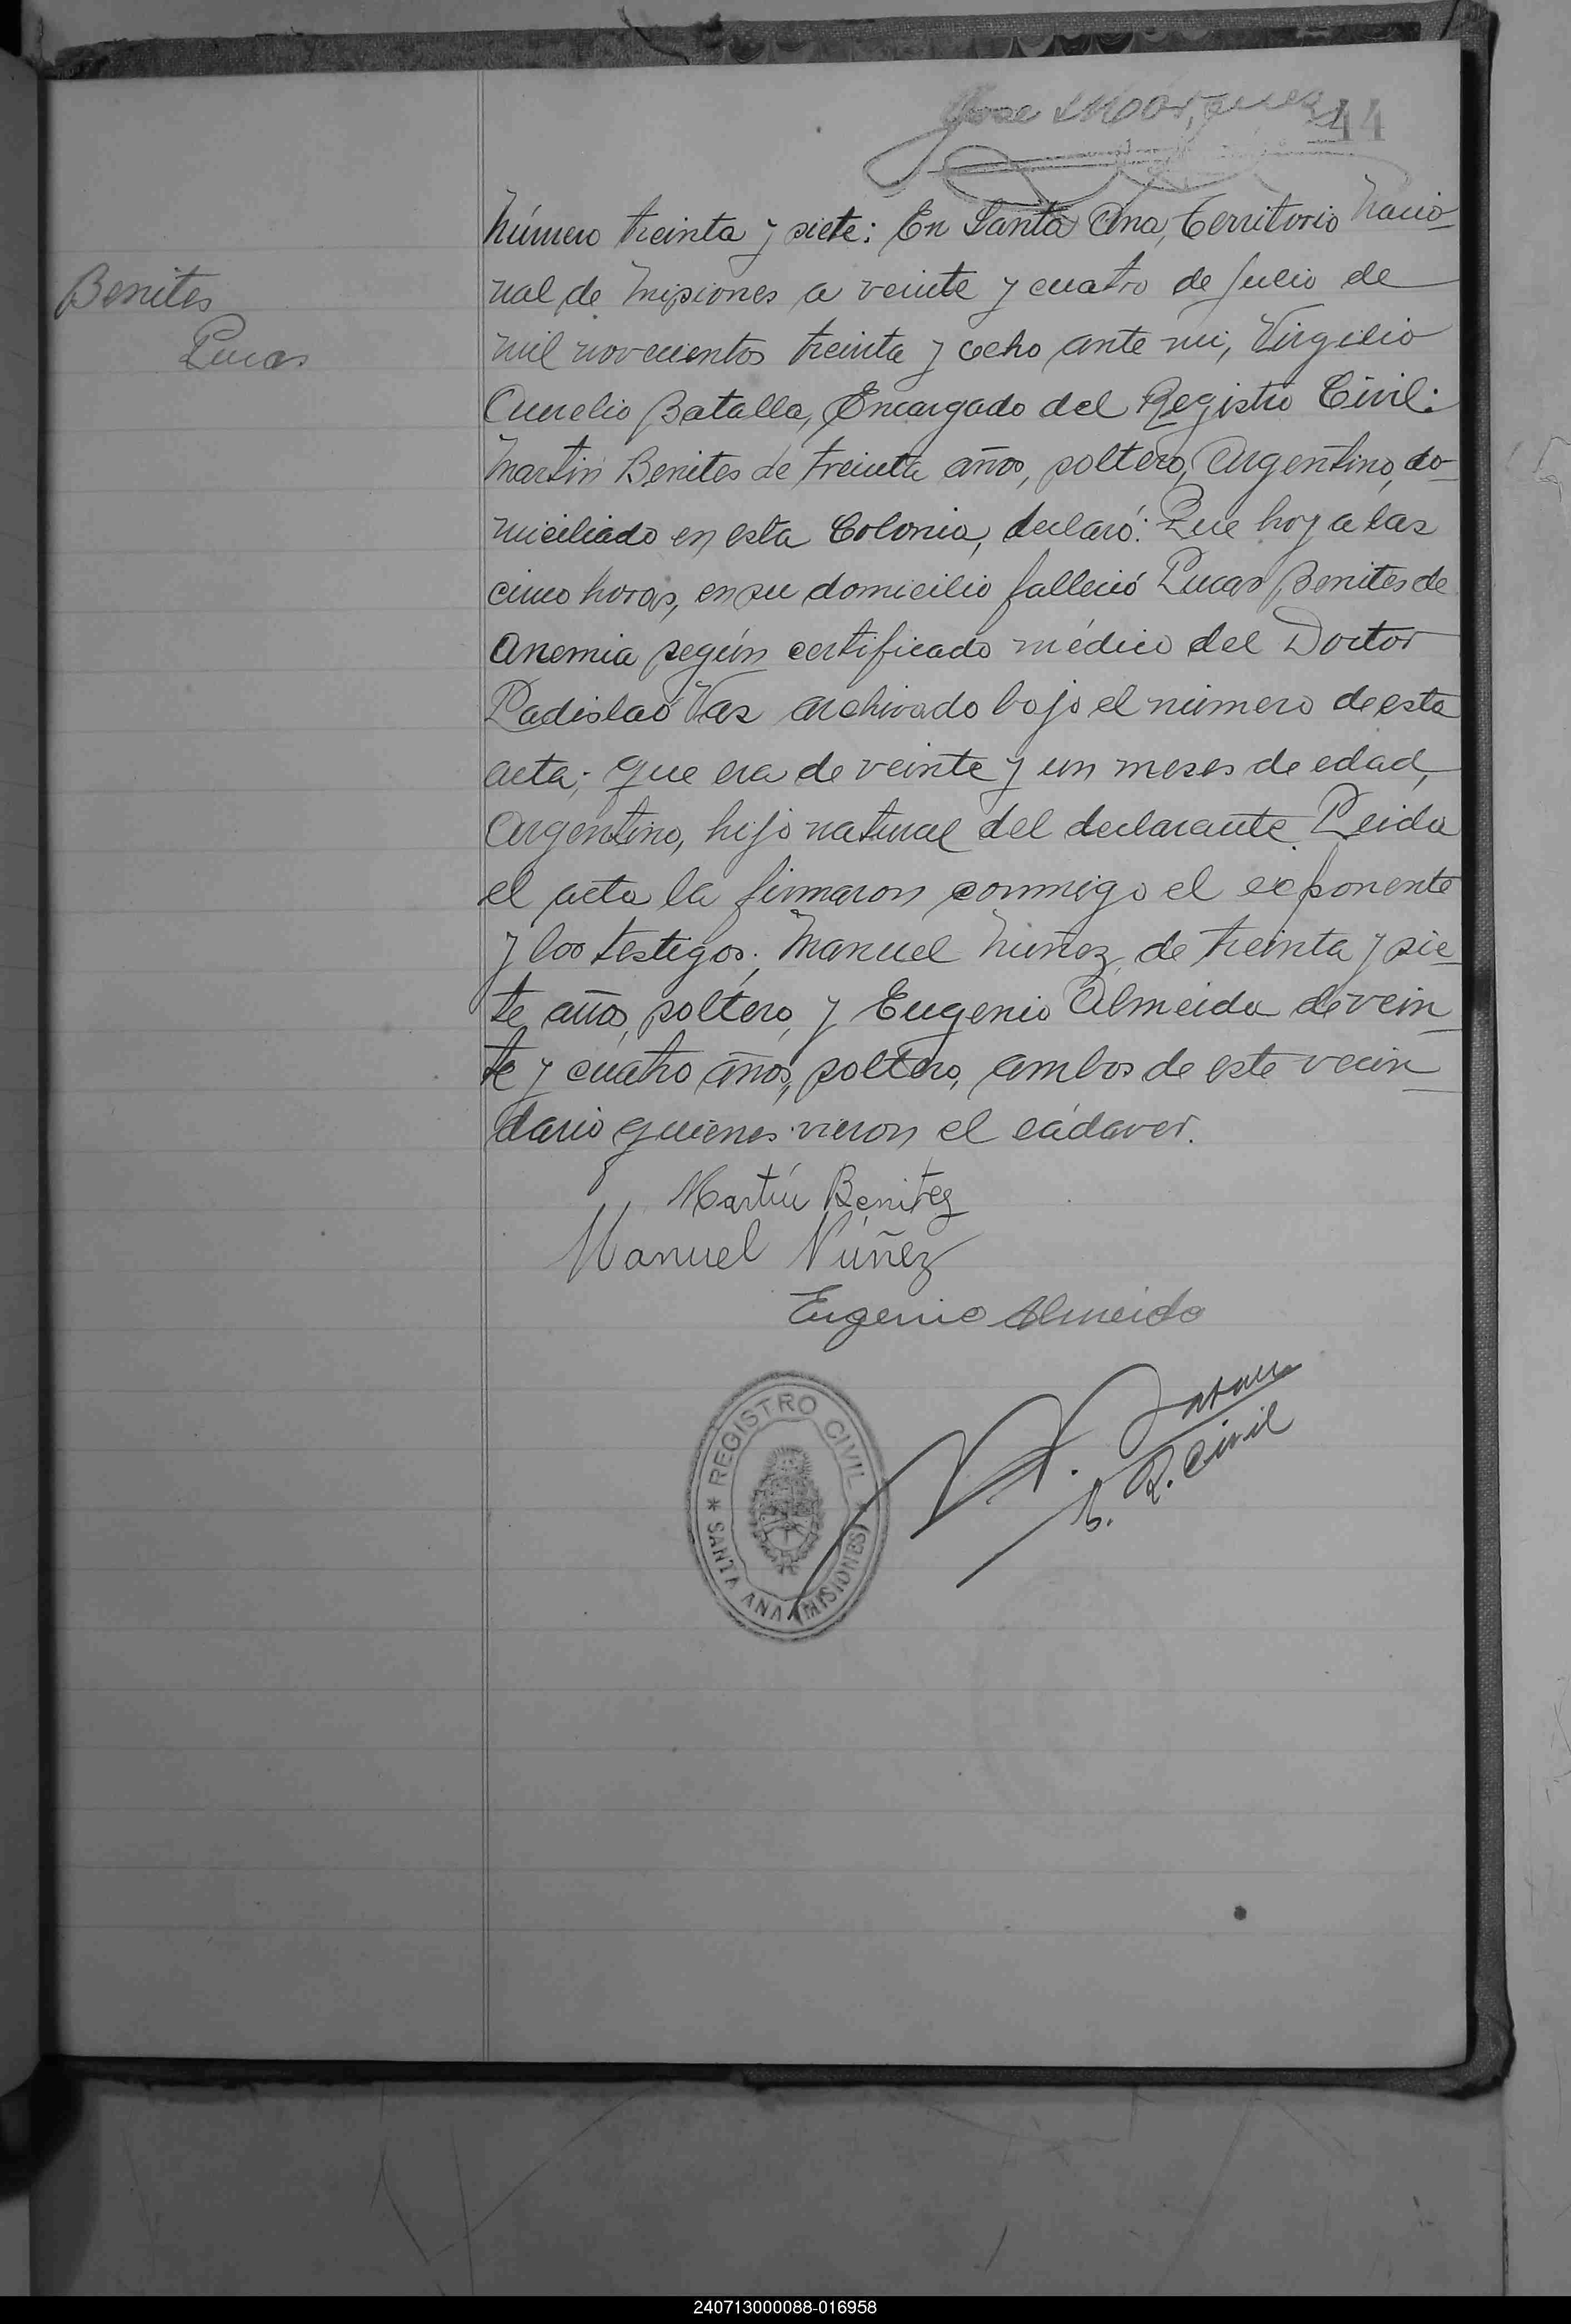 Jose Marquez
44
Benites
Lucas
Número treinta y siete: En Santa Ana, Territorio Nacio-
nal de Misiones a veinte y cuatro de Julio de
mil novecientos treinta y ocho ante mi, Virgilio
Aurelio Batalla, Encargado del Registro Civil:
Martin Benites de treinta años, soltero, Argentino, do-
miciliado en esta Colonia, declaró: Que hoy a las
cinco horas, en su domicilio falleció Lucas Benites de
Anemia según certificado médico del Doctor
Ladislao Vas archivado bajo el número de esta
acta; que era de veinte y un meses de edad,
Argentino, hijo natural del declarante. Leida
el acta la firmaron conmigo el exponente
y los testigos; Manuel Nuñez, de treinta y sie-
te años, soltero, y Eugenio Almeida de vein-
te y cuatro años, soltero, ambos de este vecin-
dario quienes vieron el cádaver.
Martín Benitez
Manuel Núñez
Eugenio Almeida
REGISTRO CIVIL
* SANTA ANA (MISIONES) *
V. A.
E. R. Civil
240713000088-016958